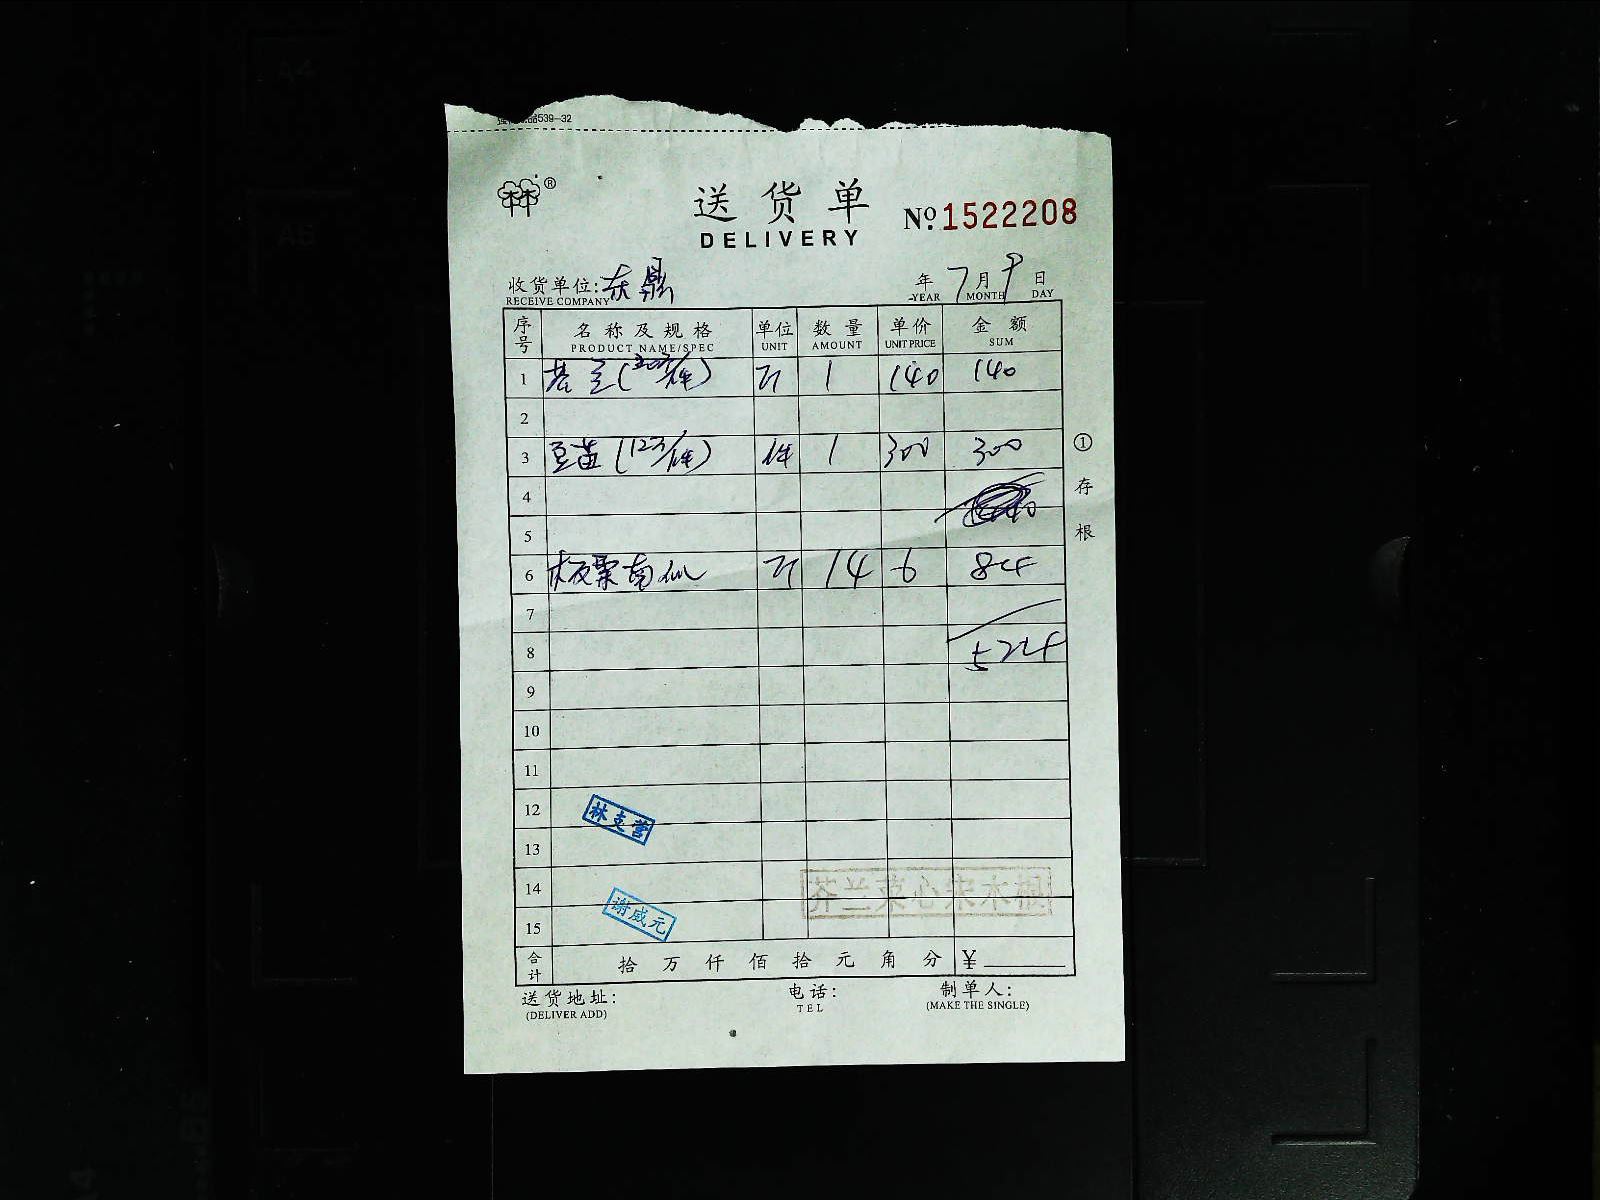 539-32
林林 ®
送货单
DELIVERY
Nº.1522208
收货单位:东鼎
RECEIVE COMPANY
年 7 月 9 日
YEAR MONTH DAY
序号 名称及规格 单位 数量 单价 金额
PRODUCT NAME/SPEC UNIT AMOUNT UNIT PRICE SUM
1 1 140 140
2
3 豆苗(12斤/件) 件 1 300 300
4
5
6 板栗南瓜 斤 14 6 84
7
8 524
9
10
11
12 林支营
13
14 芥兰菜心宋木根
15 谢威元
合计 拾 万 仟 佰 拾 元 角 分 ¥
送货地址: 电话: 制单人:
(DELIVER ADD) TEL (MAKE THE SINGLE)
① 存根
A4
A5